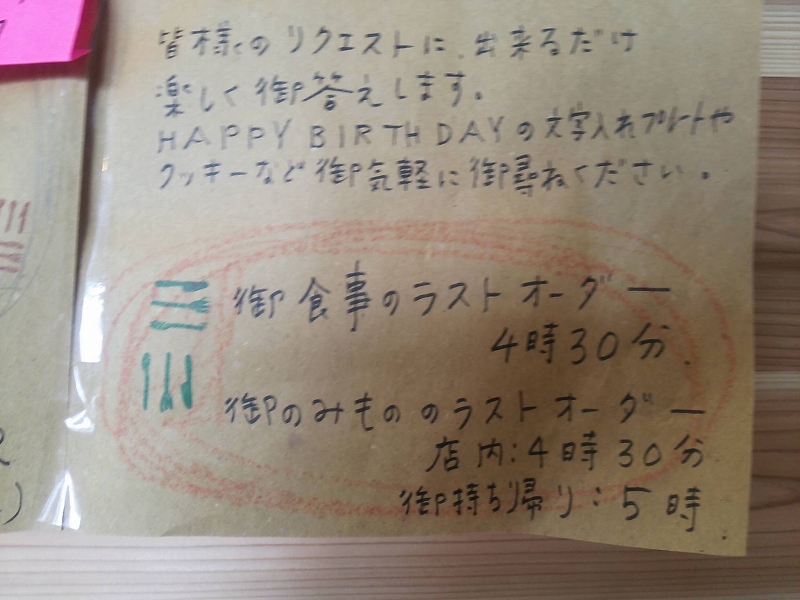 皆様のリクエストに、出来るだけ
楽しく御答えします。
HAPPY BIRTHDAYの文字入れプレートや
クッキーなど御気軽に御尋ねください。
御食事のラストオーダー
4時30分.
御のみもののラストオーダー
店内:4時30分
御持ち帰り:5時